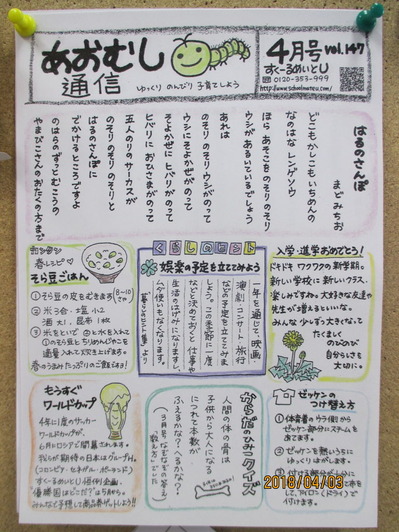 あおむし
通信
ゆっくり のんびり 子育てしよう
4月号 vol.147
すくーるめいとU
0120-353-999
http://www.schoolmateu.com/
はるのさんぽ
まど みちお
どこもかしこも いちめんの
なのはな レンゲソウ
ほら あそこを のそり のそり
ウシがあるいているでしょう
あれは
のそり のそり ウシがのって
ウシに そよかぜがのって
そよかぜに ヒバリがのって
ヒバリに おひさまがのって
五人のりのサーカスが
のそり のそり のそりと
はるのさんぽに
でかけるところですよ
のはらのずっとむこうの
やまびこさんのおたくの方まで
カンタン
春レシピ♡
そら豆ごはん
①そら豆の皮をむきます
8〜10コ
②米3合・塩小2
酒大1、昆布1枚
③米をといで②と水を入れて
①のそら豆とちりめんじゃこを
適量入れて炊き上げます。
春のうまみたっぷりのご飯です!
くらしのヒント
娯楽の予定を立ててみよう
一年を通じて、映画
演劇、コンサート、旅行
などの予定を立ててみま
しょう。この季節に一度
などと決めておくと仕事や
生活のはげみになりますし、
ムダ使いもなくなります。
「暮らしのヒント集」より
入学・進学おめでとう!
ドキドキ ワクワクの新学期。
新しい学校に新しいクラス、
楽しみですね。大好きな友達や
先生が増えるといいな。
みんな 少しずつ大きくなって
たくましい
のびのび
自分らしさを
大切に。
もうすぐ
ワールドカップ
4年に1度のサッカー
ワールドカップが
6月にロシアで開幕されます。
我らが期待の日本はグループH。
(コロンビア・セネガル・ポーランド)
すくーるめいとU恒例企画。
優勝国はどこだ?は5月から。
みんなで予想して商品券ゲットしよう!!
からだのひみつクイズ
人間の体の骨は
子供から大人になる
につれて本数が
ふえるかな?へるかな?
ゼッケンの
つけ替え方
①体育着のウラ側から
ゼッケン部分にスチームを
あてます。
②ゼッケンを熱いうちに
ゆっくりはがします。
して、アイロン(ドライ)で
付けます。
2018/04/03